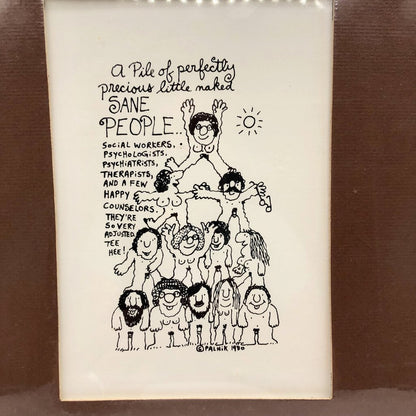 A Pile of perfectly
precious little naked
SANE
PEOPLE..
SOCIAL WORKERS,
PSYCHOLOGISTS,
PSYCHIATRISTS,
THERAPISTS,
AND A FEW
HAPPY
COUNSELORS.
THEY'RE
SO VERY
ADJUSTED.
TEE
HEE!
© PALNIK 1980